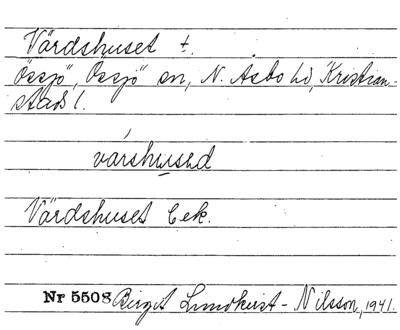 Värdshuset t.
Össjö, Össjö sn, N. Åsbo hd, Kristian-
stads l.
várshused
Värdshuset Eek.
Nr 5508 Birgit Lundkvist-Nilsson, 1941.